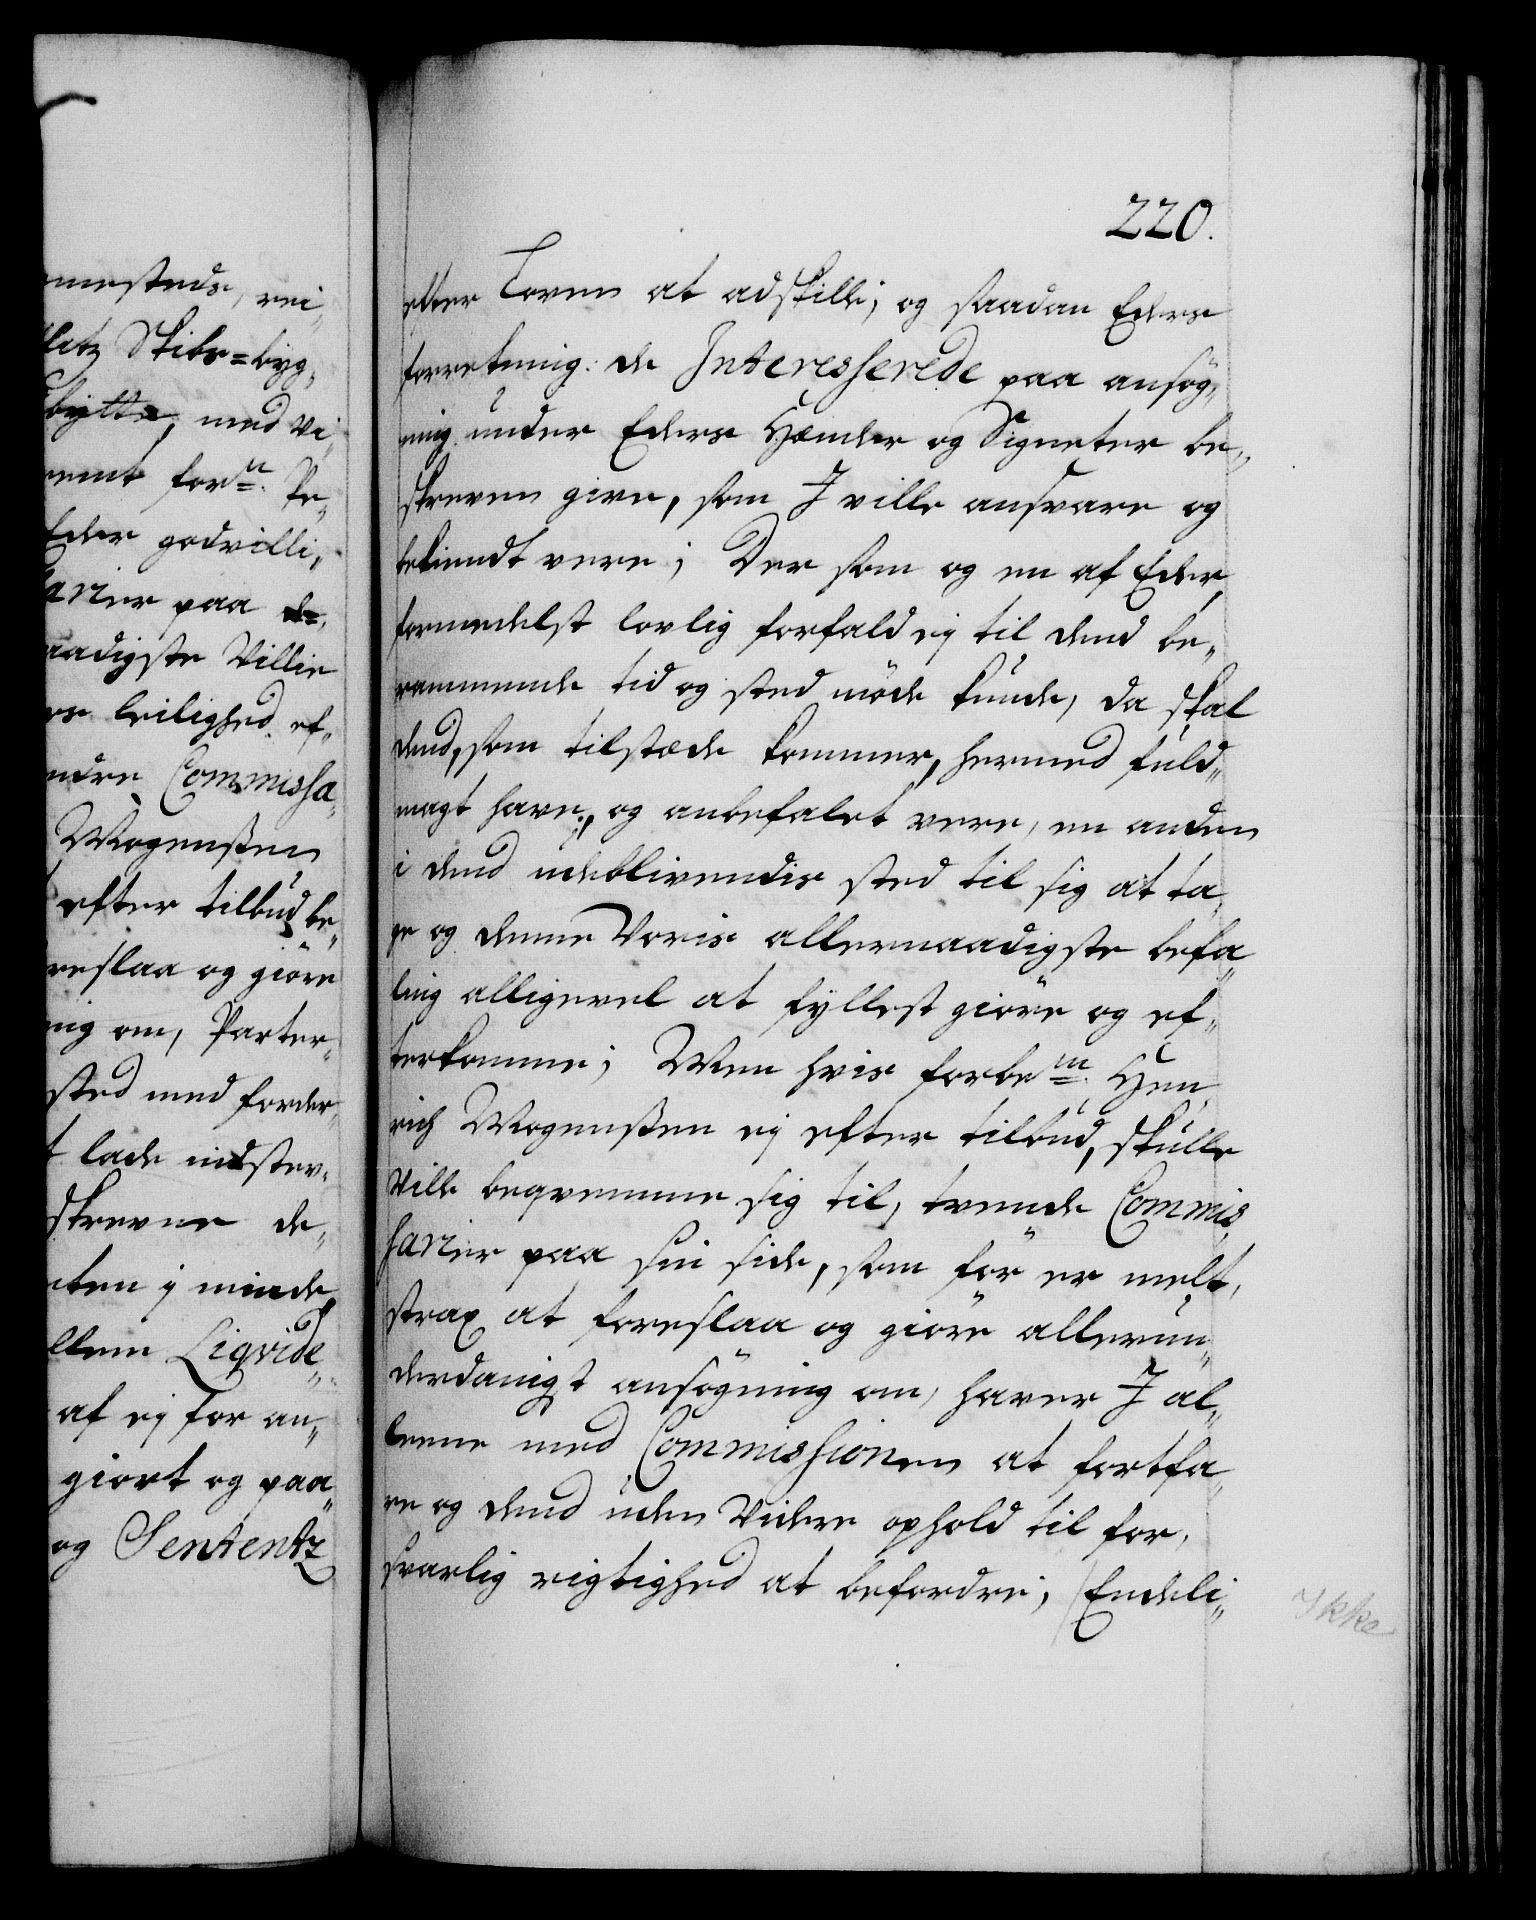 mesteds, vei„
Skibs=byg„
med Ve„
forn. Pe„
Eder godvilli„
arier paa de„
aadigste Villie
leilighed ef„
Commissa„
Mogenssen
efter tilbud be„
reslaa og giöre
nig om, Parter„
sted med forder„
t lade indstev„
skrevne de„
ten i minde
llem Liqvide„
af ej for an„
giort og paa
og Sententz
220.
efter Loven at adskille; og saadan Eders
forretning de Interesserede paa ansög„
ning under Eders Hænder og Signeter be„
skreven give, som I ville ansvare og
bekiendt vere; Der som og en af Eder
formedelst lovlig forfald ej til dend be„
rammende tid og sted möde kunde, da skal
dend, som tilstæde kommer, hermed fuld„
magt have, og anbefalet vere, en anden
i dend udeblivendis sted til sig at ta„
ge og denne Voris allernaadigste befa„
ling alligevel at fyllest giöre og ef„
terkomme; Men hvis forbem. Hen„
rich Mogenssen ej efter tilbud, skulle
Ville beqvemme sig til, tvende Commis„
sarier paa sin side, som för er melt,
strax at foreslaa og giöre allerun„
derdanigst ansögning om, haver I al„
leene med Commissionen at fortfa„
re og dend uden Videre ophold til for„
svarlig rigtighed at befordre; Endeli„
Ikke